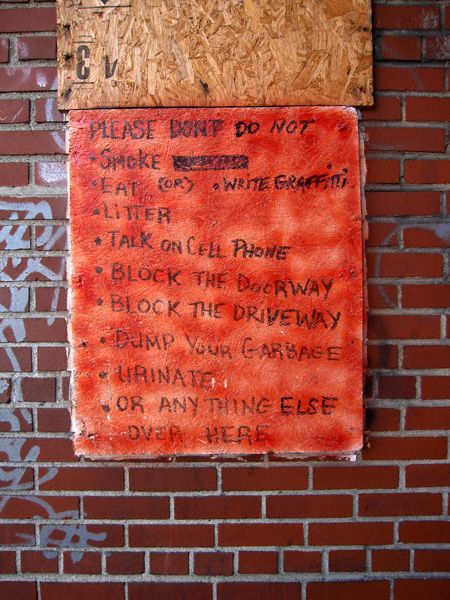 PLEASE DONT DO NOT
• SMOKE
• EAT (OR) • WRITE GRAFFITTI
• LITTER
• TALK ON CELL PHONE
• BLOCK THE DOORWAY
• BLOCK THE DRIVEWAY
• DUMP YOUR GARBAGE
• URINATE
• OR ANYTHING ELSE
OVER HERE